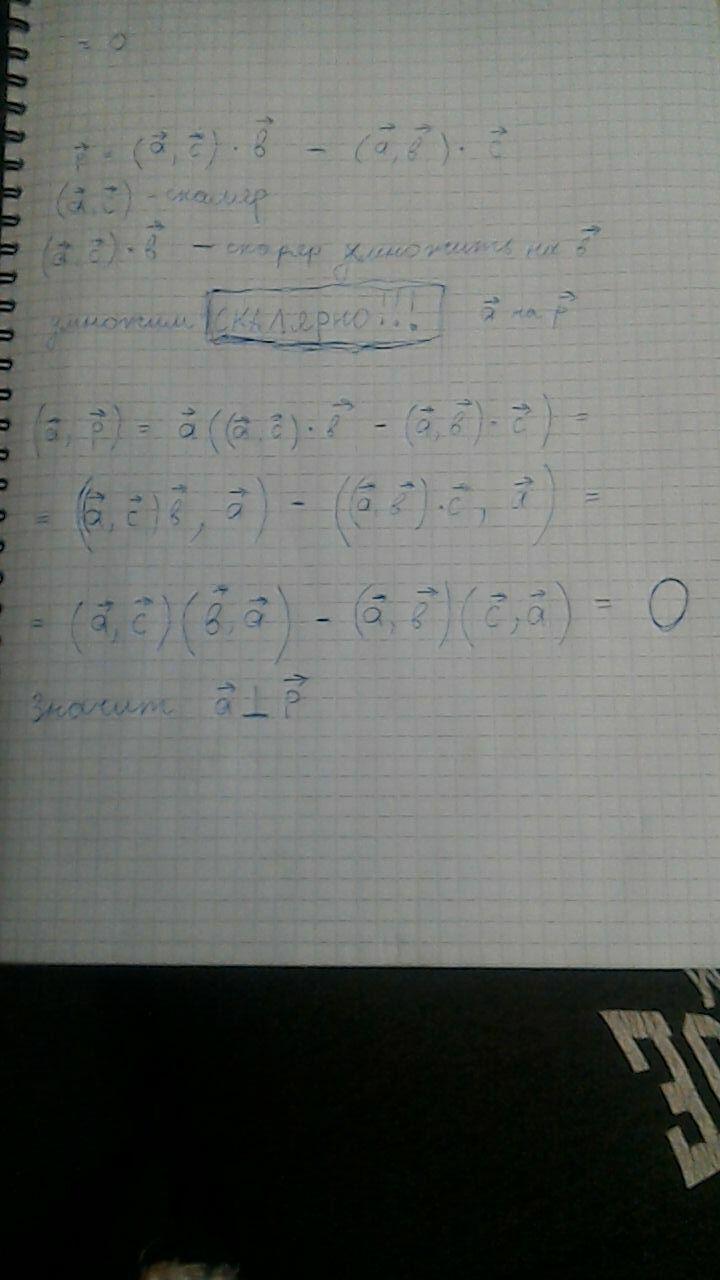 = 0
= (a⃗, c⃗) · в⃗ - (a⃗, в⃗) · c⃗
(a⃗, c⃗) - скаляр
(a⃗, c⃗) · в⃗ - умножить на в⃗
умножим СКАЛЯРНО!!! a⃗ на p⃗
(a⃗, p⃗) = a⃗((a⃗, c⃗) · в⃗ - (a⃗, в⃗) · c⃗) =
= ((a⃗, c⃗)в⃗, a⃗) - ((a⃗, в⃗) · c⃗, a⃗) =
= (a⃗, c⃗)(в⃗, a⃗) - (a⃗, в⃗)(c⃗, a⃗) = 0
Значит a⃗ ⊥ p⃗